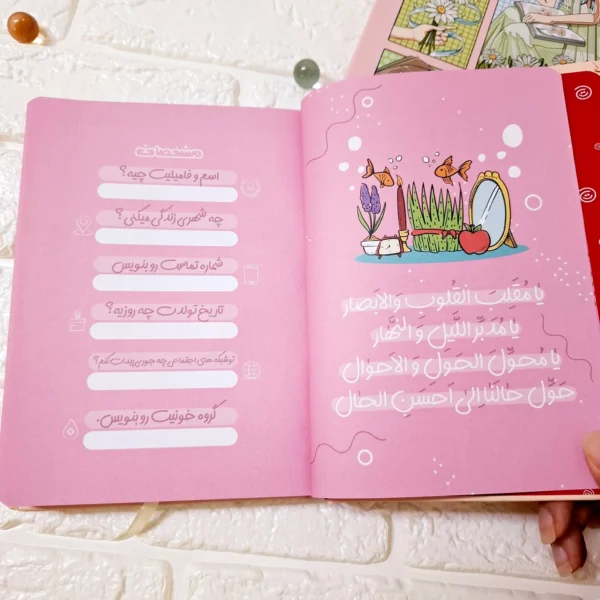 مشخصات
اسم و فامیلیت چیه؟
چه شهری زندگی میکنی؟
شماره تماست رو بنویس
تاریخ تولدت چه روزیه؟
توشبکه های اجتماعی چه جوری پیدات کنم؟
گروه خونیت رو بنویس.
یا مُقَلِّبَ القُلُوبِ وَالاَبصار
یا مُدَبِّرَ اللَّیلِ وَ النَّهار
یا مُحَوِّلَ الحَولِ وَ الاَحوال
حَوِّل حالَنا اِلیٰ اَحسَنِ الحال.